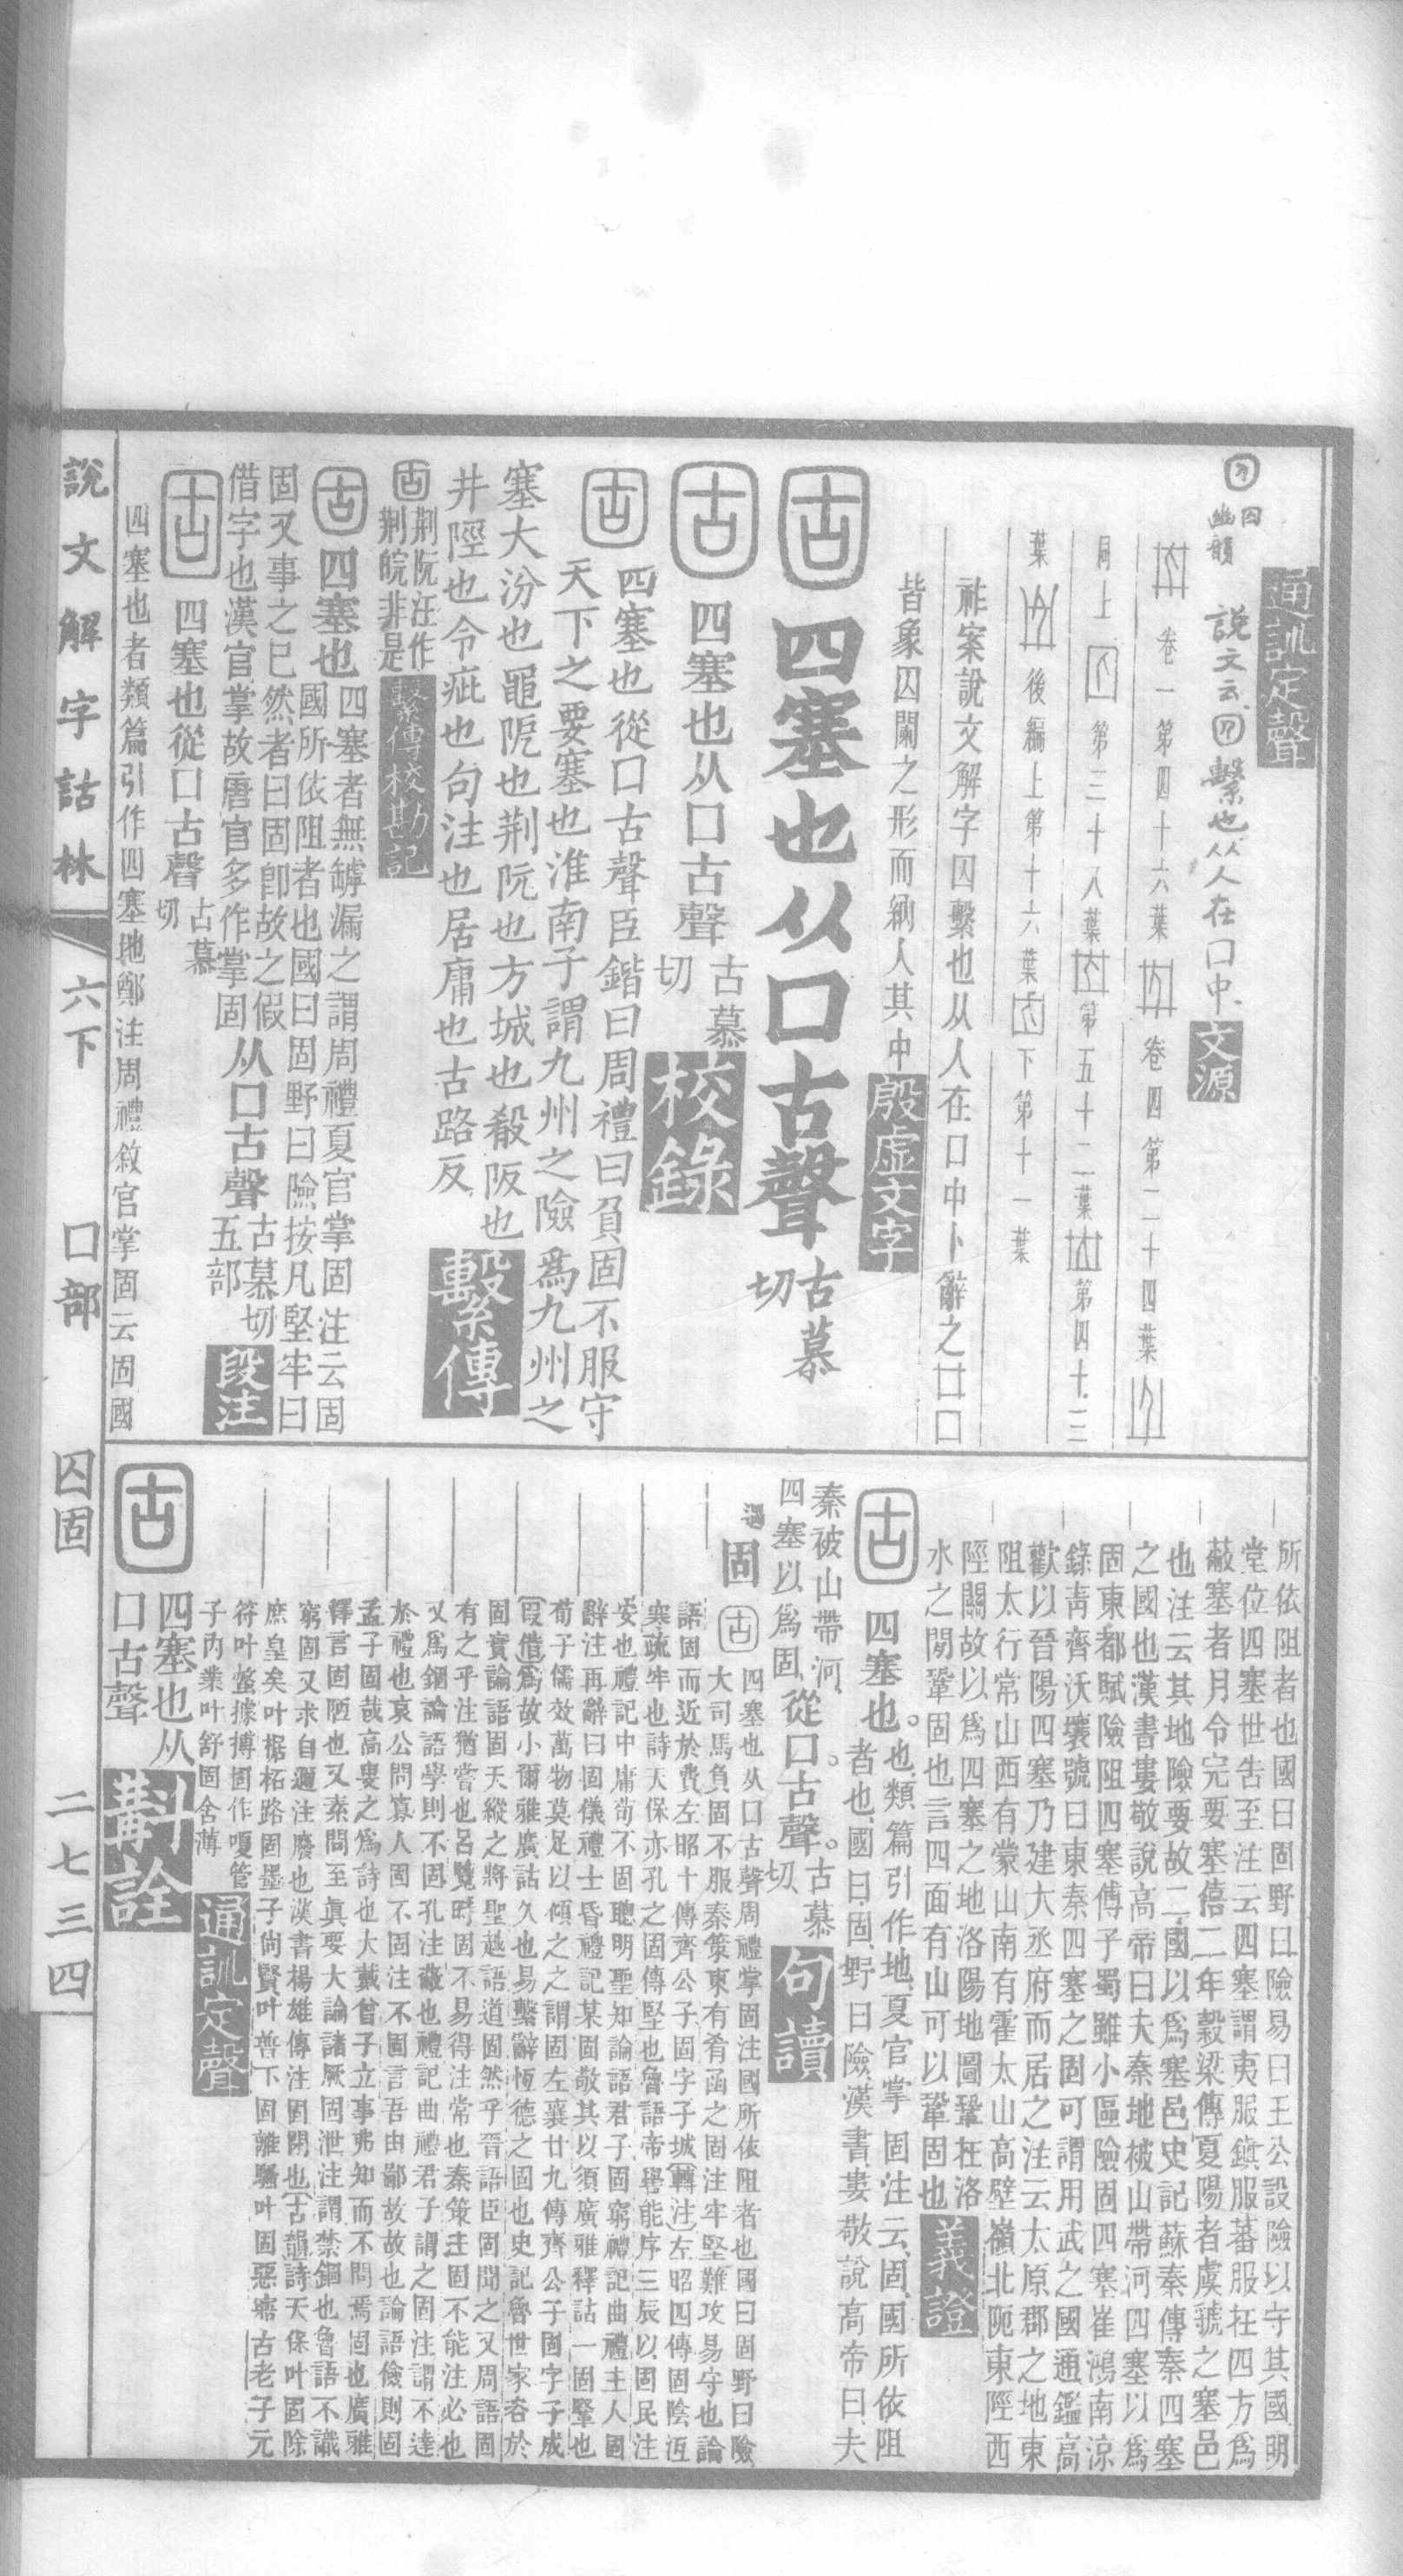 通訓定聲
囚 幽韻 說文云 繫也从人在囗中 文源
卷一第四十六葉 卷四第二十四葉
同上 第三十八葉 第五十二葉 第四十三
葉 後編上第十六葉 下第十一葉
祚案說文解字囚繫也从人在囗中卜辭之
皆象囚闌之形而納人其中 殷虛文字
四塞也从囗古聲古慕切
四塞也从囗古聲古慕切 校錄
四塞也從囗古聲臣鍇曰周禮曰負固不服守
天下之要塞也淮南子謂九州之險爲九州之
塞大汾也黽阨也荆阮也方城也殽阪也
井陘也令疵也句注也居庸也古路反 繫傳
荆阮汪作荆皖非是 繫傳校勘記
四塞也四塞者無罅漏之謂周禮夏官掌固注云固
國所依阻者也國曰固野曰險按凡堅牢曰
固又事之已然者曰固卽故之假
借字也漢官掌故唐官多作掌固 从囗古聲古慕切五部 段注
四塞也從囗古聲古慕切
四塞也者類篇引作四塞地鄭注周禮敘官掌固云固國
所依阻者也國曰固野曰險易曰王公設險以守其國明
堂位四塞世告至注云四塞謂夷服鎮服蕃服在四方爲
蔽塞者月令完要塞僖二年穀梁傳夏陽者虞虢之塞邑
也注云其地險要故二國以爲塞邑史記蘇秦傳秦四塞
之國也漢書婁敬說高帝曰夫秦地被山帶河四塞以爲
固東都賦險阻四塞傅子蜀雖小區險固四塞崔鴻南涼
錄靑齊沃壤號曰東秦四塞之固可謂用武之國通鑑高
歡以晉陽四塞乃建大丞府而居之注云太原郡之地東
阻太行常山西有蒙山南有霍太山高壁嶺北阨東陘西
陘關故以爲四塞之地洛陽地圖鞏在洛
水之閒鞏固也言四面有山可以鞏固也 義證
四塞也。也類篇引作地夏官掌固注云固國所依阻
者也國曰固野曰險漢書婁敬說高帝曰夫
秦被山帶河
四塞以爲固 從囗古聲。古慕切 句讀
固 四塞也从囗古聲周禮掌固注國所依阻者也國曰固野曰險
大司馬負固不服秦策東有肴函之固注牢堅難攻易守也論
語固而近於費左昭十傳齊公子固字子城轉注左昭四傳固陰沍
寒疏牢也詩天保亦孔之固傳堅也魯語帝嚳能序三辰以固民注
安也禮記中庸苟不固聰明聖知論語君子固窮禮記曲禮主人固
辭注再辭曰固儀禮士昏禮記某固敬其以須廣雅釋詁一固鞏也
荀子儒效萬物莫足以傾之之謂固左襄廿九傳齊公子固字子成
叚借爲故小爾雅廣詁久也易繫辭恆德之固也史記魯世家咨於
固實論語固天縱之將聖越語道固然乎晉語臣固聞之又周語固
有之乎注猶嘗也呂覽時固不易得注常也秦策主固不能注必也
又爲錮論語學則不固孔注蔽也禮記曲禮君子謂之固注謂不達
於禮也哀公問寡人固不固注不固言吾由鄙故故也論語儉則固
孟子固哉高叟之爲詩也大戴曾子立事弗知而不問焉固也廣雅
釋言固陋也又素問至眞要大論諸厥固泄注謂禁錮也魯語不識
窮固又求自邇注廢也漢書楊雄傳注固閉也古韻詩天保叶固除
庶皇矣叶椐柘路固墨子尙賢叶普下固離騷叶固惡寤古老子元
符叶螫據搏固作嗄管
子內業叶舒固舍薄 通訓定聲
四塞也从
囗古聲 斠詮
說文解字詁林 六下 囗部 囚固 二七三四